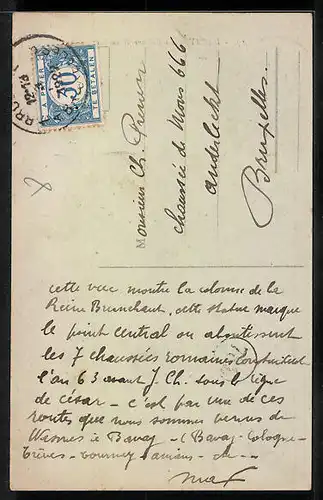 A PAYER
50
TE BETALEN
Monsieur Ch.
chaussée de Mons 666
Anderlecht
Bruxelles.
cette vue montre la colonne de la
Reine Brunehaut, cette statue marque
le point central ou aboutissent
les 7 chaussées romaines construites
l'an 63 avant J. Ch. sous le règne
de césar - c'est par une de ces
routes que nous sommes venus de
Wasmes à Bavay - (Bavay - Cologne -
Trèves - Tournay - amiens - etc -
max